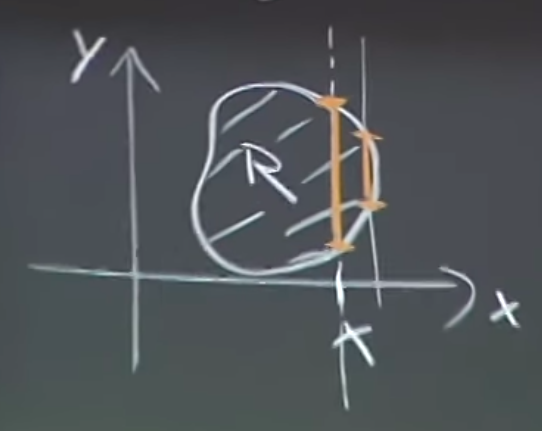 y
R
x
x